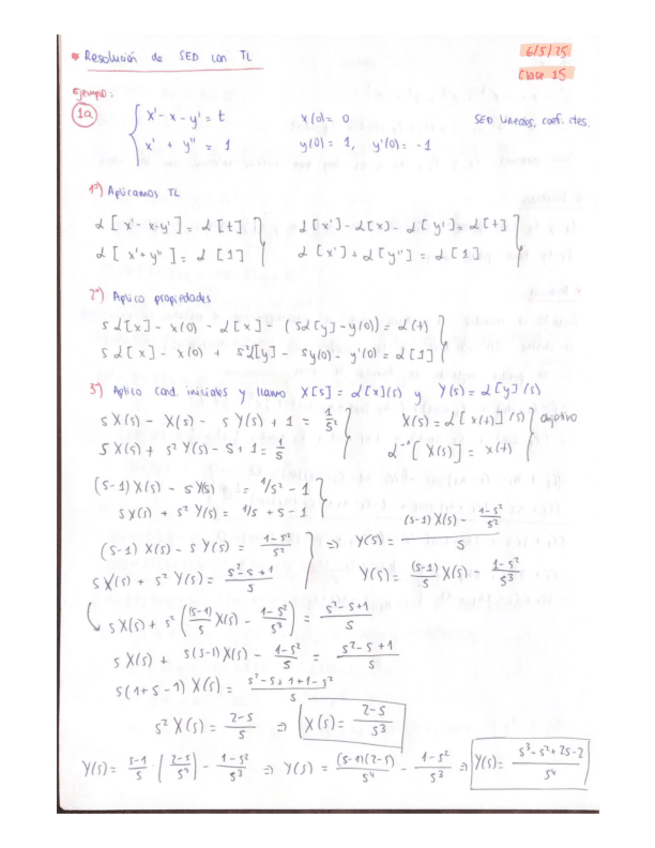 * Resolución de SED con TL
6/5/25
Clase 15
Ejemplo:
1a
{ x' - x - y' = t    x(0) = 0    SED lineales, coef. ctes.
x' + y'' = 1    y(0) = 1, y'(0) = -1
1º) Aplicamos TL
L[x' - x - y'] = L[t] }    L[x'] - L[x] - L[y'] = L[t] }
L[x' + y''] = L[1]    L[x'] + L[y''] = L[1]
2º) Aplico propiedades
s L[x] - x(0) - L[x] - (s L[y] - y(0)) = L(t) }
s L[x] - x(0) + s² L[y] - s y(0) - y'(0) = L[1]
3º) Aplico cond. iniciales y llamo X[s] = L[x](s) y Y(s) = L[y](s)
s X(s) - X(s) - s Y(s) + 1 = 1/s² }    X(s) = L[x(t)](s) } objetivo
s X(s) + s² Y(s) - s + 1 = 1/s    L⁻¹[X(s)] = x(t)
(s-1) X(s) - s Y(s) = 1/s² - 1 }
s X(s) + s² Y(s) = 1/s + s - 1
(s-1) X(s) - s Y(s) = (1-s²)/s² } ⇒ Y(s) = ((s-1) X(s) - (1-s²)/s²)/s
s X(s) + s² Y(s) = (s²-s+1)/s    Y(s) = (s-1)/s X(s) - (1-s²)/s³
s X(s) + s² ((s-1)/s X(s) - (1-s²)/s³) = (s²-s+1)/s
s X(s) + s(s-1) X(s) - (1-s²)/s = (s²-s+1)/s
s(1+s-1) X(s) = (s²-s+1+1-s²)/s
s² X(s) = (2-s)/s ⇒ X(s) = (2-s)/s³
Y(s) = (s-1)/s · ((2-s)/s³) - (1-s²)/s³ ⇒ Y(s) = (s-1)(2-s)/s⁴ - (1-s²)/s³ ⇒ Y(s) = (s³-s²+2s-2)/s⁴